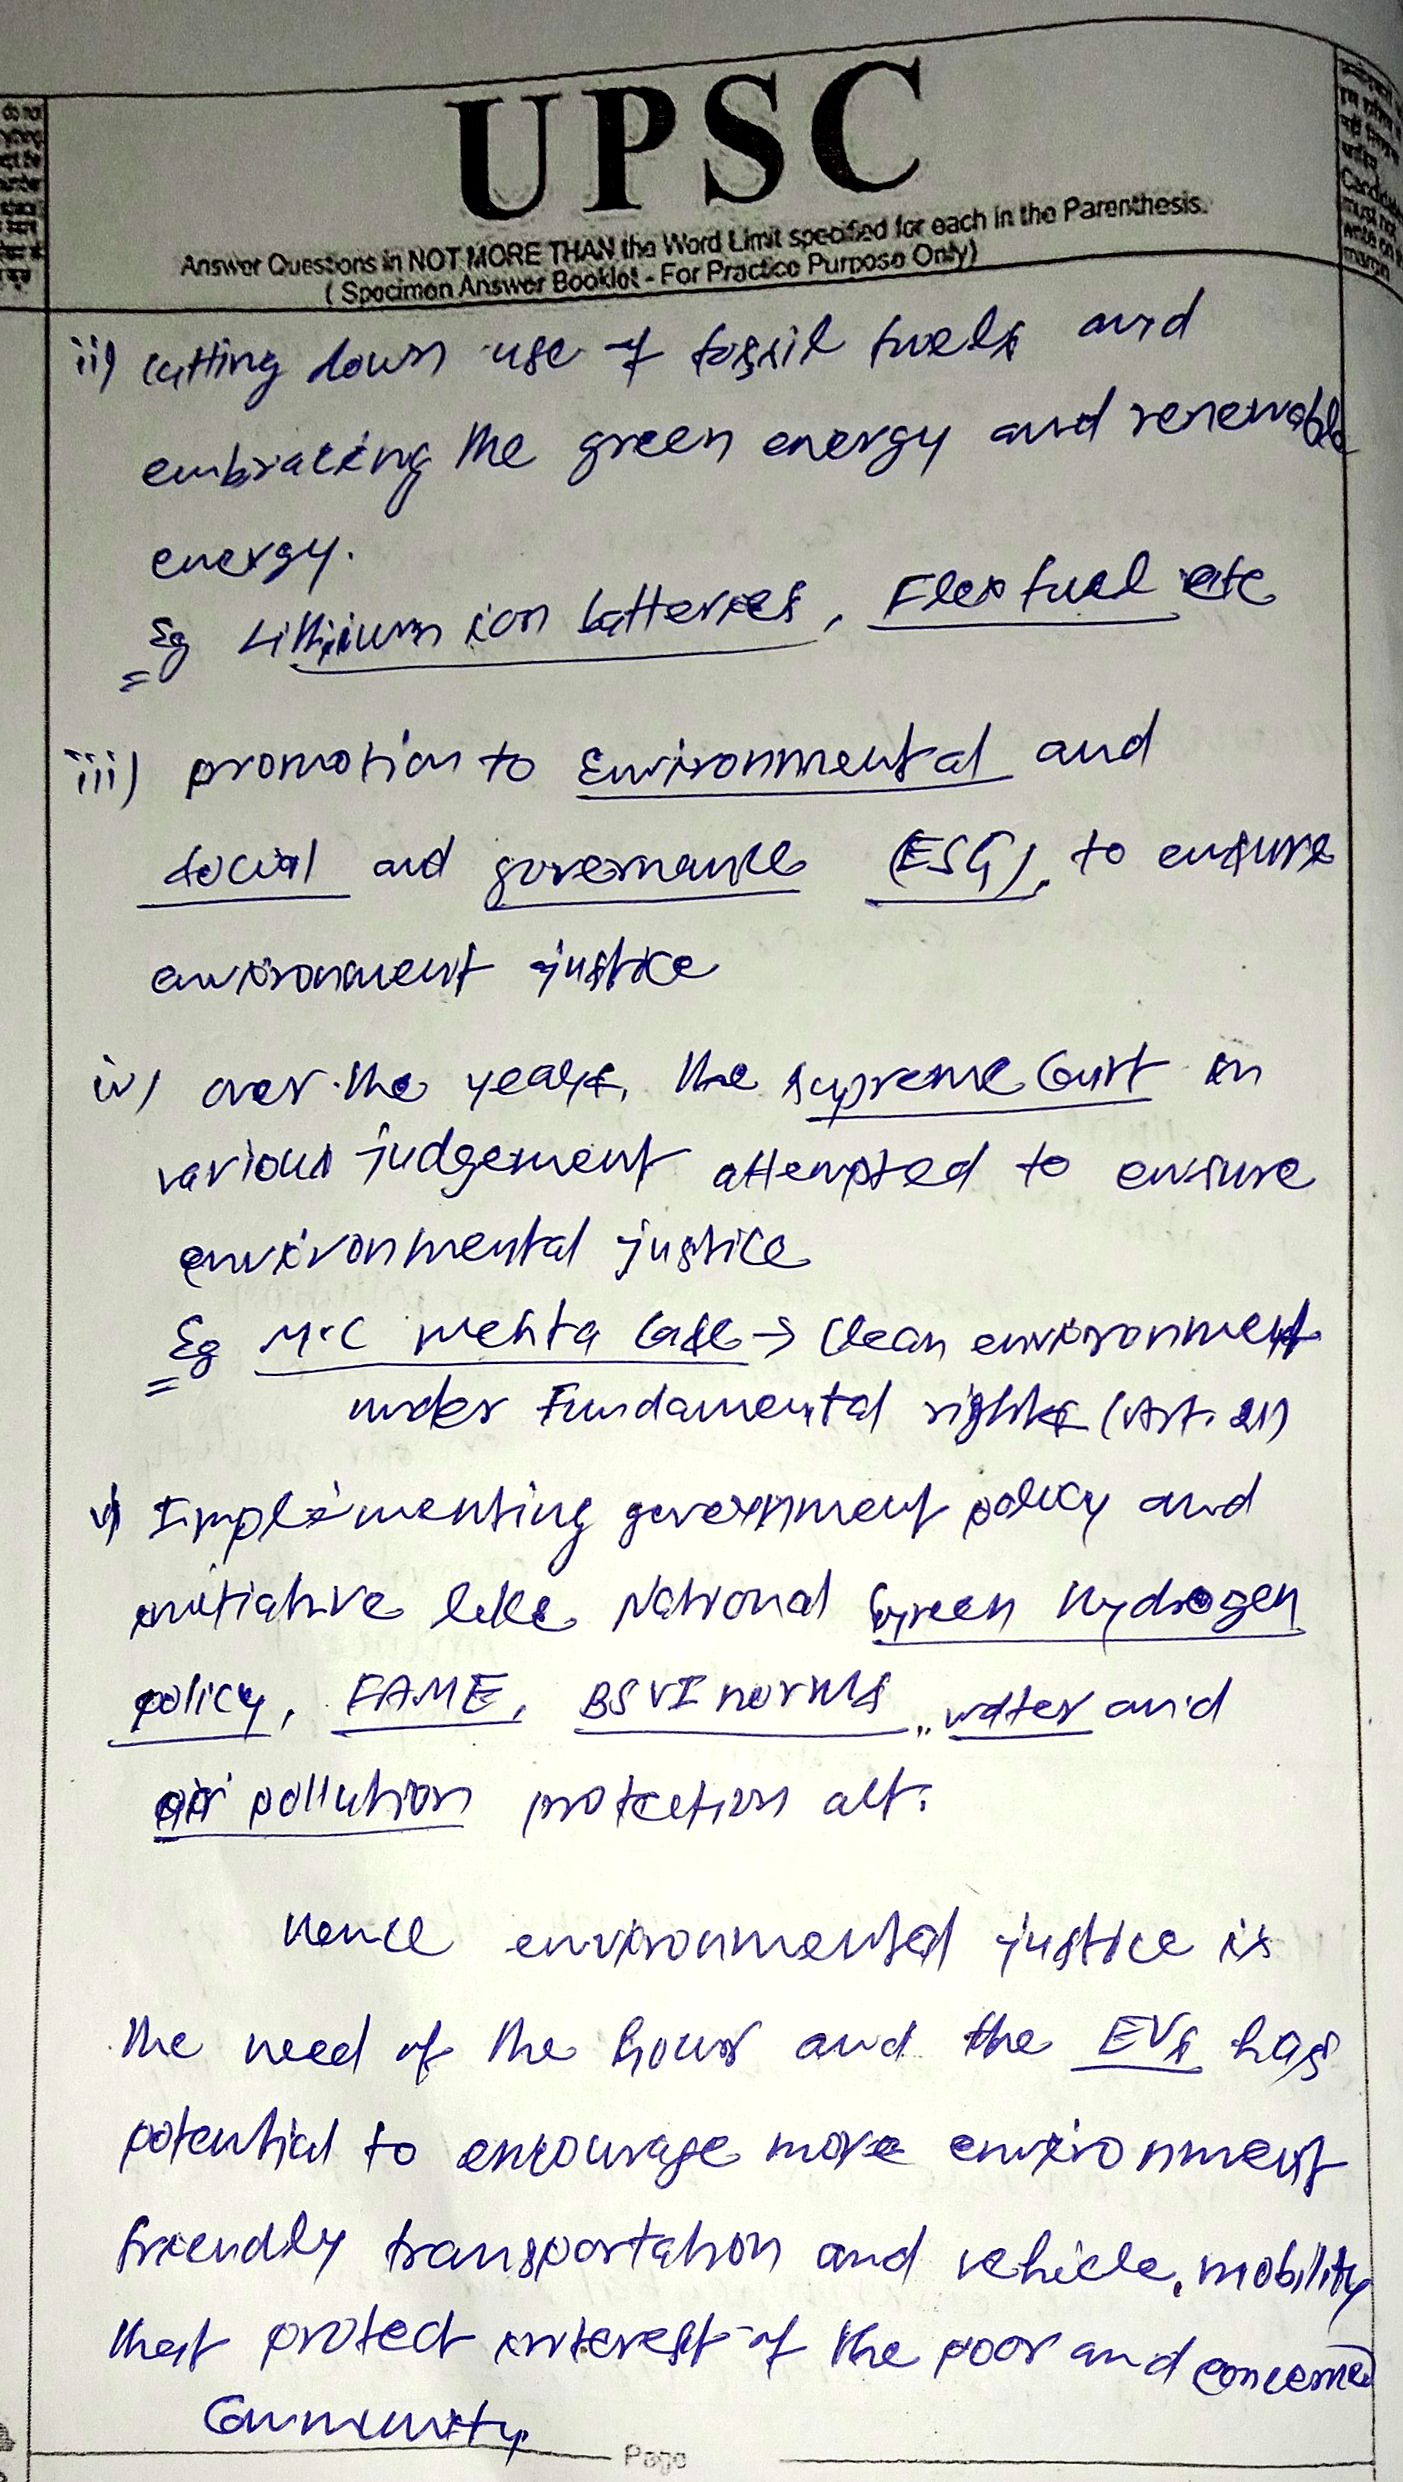 UPSC
Answer Questions in NOT MORE THAN the Word Limit specified for each in the Parenthesis.
( Specimen Answer Booklet - For Practice Purpose Only)
Candidate
must not
write on
margin
ii) Cutting down use of fossil fuels and
embracing the green energy and renewable
energy.
Eg Lithium ion batteries, Flex fuel etc
iii) promotion to Environmental and
social and governance (ESG), to ensure
environment justice
iv) over the years, the supreme Court in
various judgement attempted to ensure
environmental justice
Eg M.C Mehta Case → Clean environment
under Fundamental rights (Art. 21)
v) Implementing government policy and
initiative like National Green Hydrogen
policy, FAME, BSVI norms, water and
air pollution protection act.
Hence environmental justice is
the need of the hour and the EVs has
potential to encourage more environment
friendly transportation and vehicle, mobility
that protect interest of the poor and concerned
Community.
Page